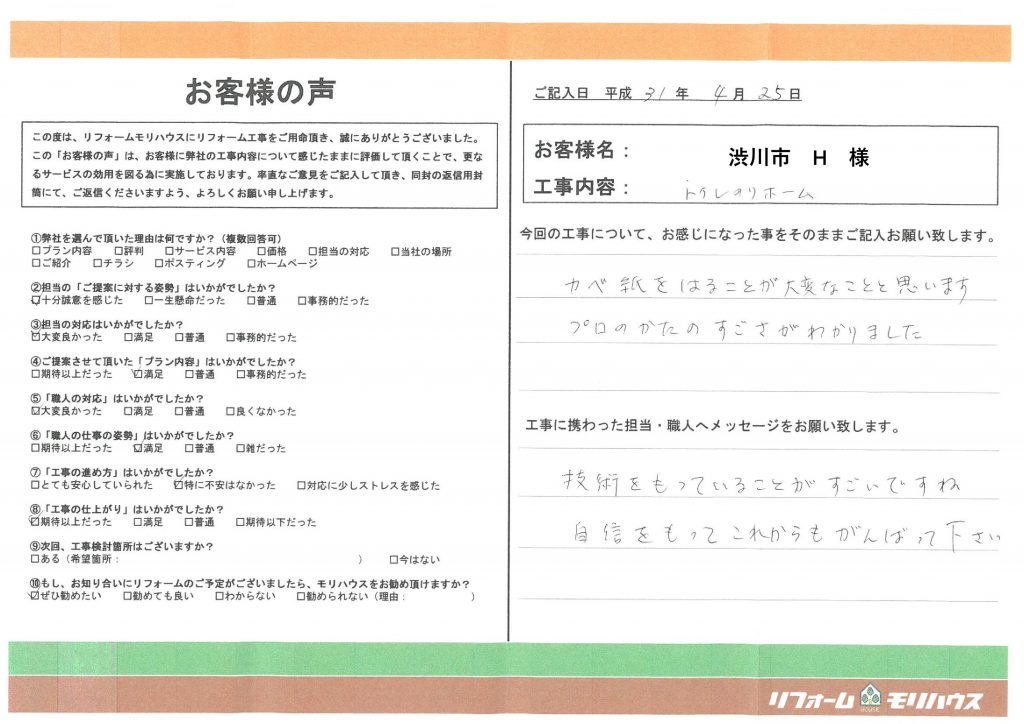 お客様の声
この度は、リフォームモリハウスにリフォーム工事をご用命頂き、誠にありがとうございました。
この「お客様の声」は、お客様に弊社の工事内容について感じたままに評価して頂くことで、更な
るサービスの効用を図る為に実施しております。率直なご意見をご記入して頂き、同封の返信用封
筒にて、ご返信くださいますよう、よろしくお願い申し上げます。
①弊社を選んで頂いた理由は何ですか？（複数回答可）
□プラン内容 □評判 □サービス内容 □価格 □担当の対応 □当社の場所
□ご紹介 □チラシ □ポスティング □ホームページ
②担当の「ご提案に対する姿勢」はいかがでしたか？
☑十分誠意を感じた □一生懸命だった □普通 □事務的だった
③担当の対応はいかがでしたか？
☑大変良かった □満足 □普通 □事務的だった
④ご提案させて頂いた「プラン内容」はいかがでしたか？
□期待以上だった ☑満足 □普通 □事務的だった
⑤「職人の対応」はいかがでしたか？
☑大変良かった □満足 □普通 □良くなかった
⑥「職人の仕事の姿勢」はいかがでしたか？
□期待以上だった ☑満足 □普通 □雑だった
⑦「工事の進め方」はいかがでしたか？
□とても安心していられた ☑特に不安はなかった □対応に少しストレスを感じた
⑧「工事の仕上がり」はいかがでしたか？
☑期待以上だった □満足 □普通 □期待以下だった
⑨次回、工事検討箇所はございますか？
□ある（希望箇所： ） □今はない
⑩もし、お知り合いにリフォームのご予定がございましたら、モリハウスをお勧め頂けますか？
☑ぜひ勧めたい □勧めても良い □わからない □勧められない（理由： ）
ご記入日 平成 31 年 4 月 25 日
お客様名： 渋川市 H 様
工事内容： トイレのリホーム
今回の工事について、お感じになった事をそのままご記入お願い致します。
カベ紙をはることが大変なことと思います
プロのかたのすごさがわかりました
工事に携わった担当・職人へメッセージをお願い致します。
技術をもっていることがすごいですね
自信をもってこれからもがんばって下さい
リフォーム HOUSE モリハウス